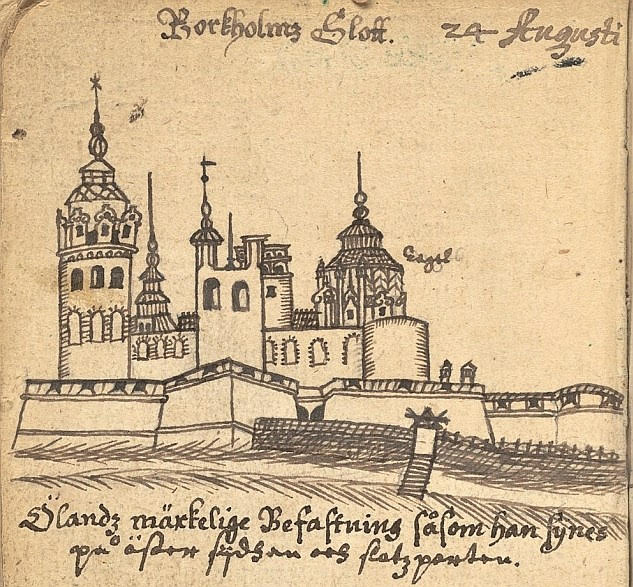 Borkholms Slott. 24 Augusti
Ölandz märkelige Befästning såsom han synes
på öster sydhan och slotz porten.